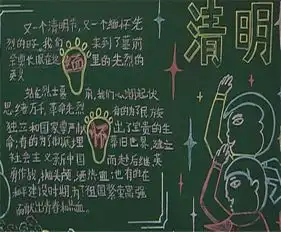 清明
又一个清明节,又一个缅怀先
烈的日子,我们来到了墓前
缅
里的先烈的
英灵
站在烈士墓前,我们心潮起伏
思绪万千,革命先烈有的为了民族
独立和国家尊严献出了宝贵的生
怀
命;有的为了
旧世界,建立
社会主义新中国而赴后继英
勇作战,抛头颅,洒热血;也有的在
和平建设时期,为了祖国繁荣富强
而献出青春和热血